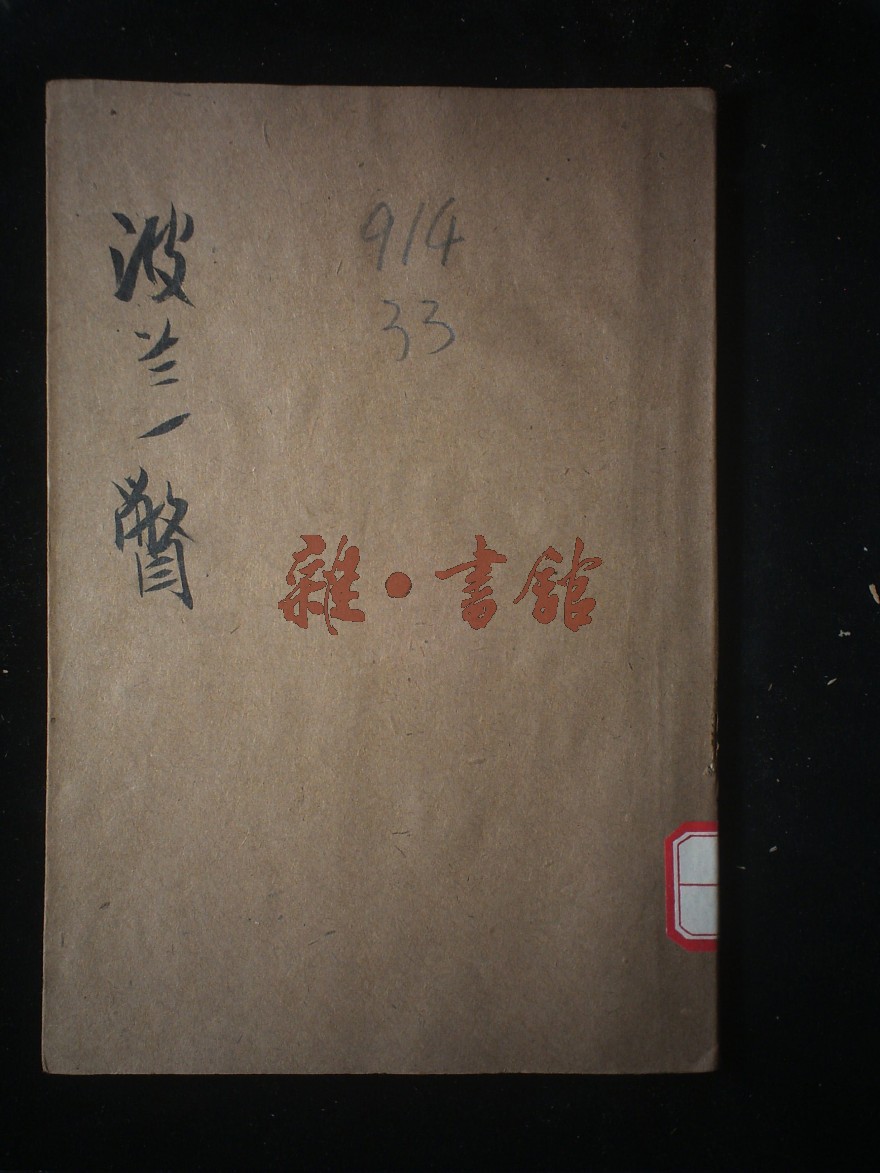 波兰一瞥
914
33
雜·書館